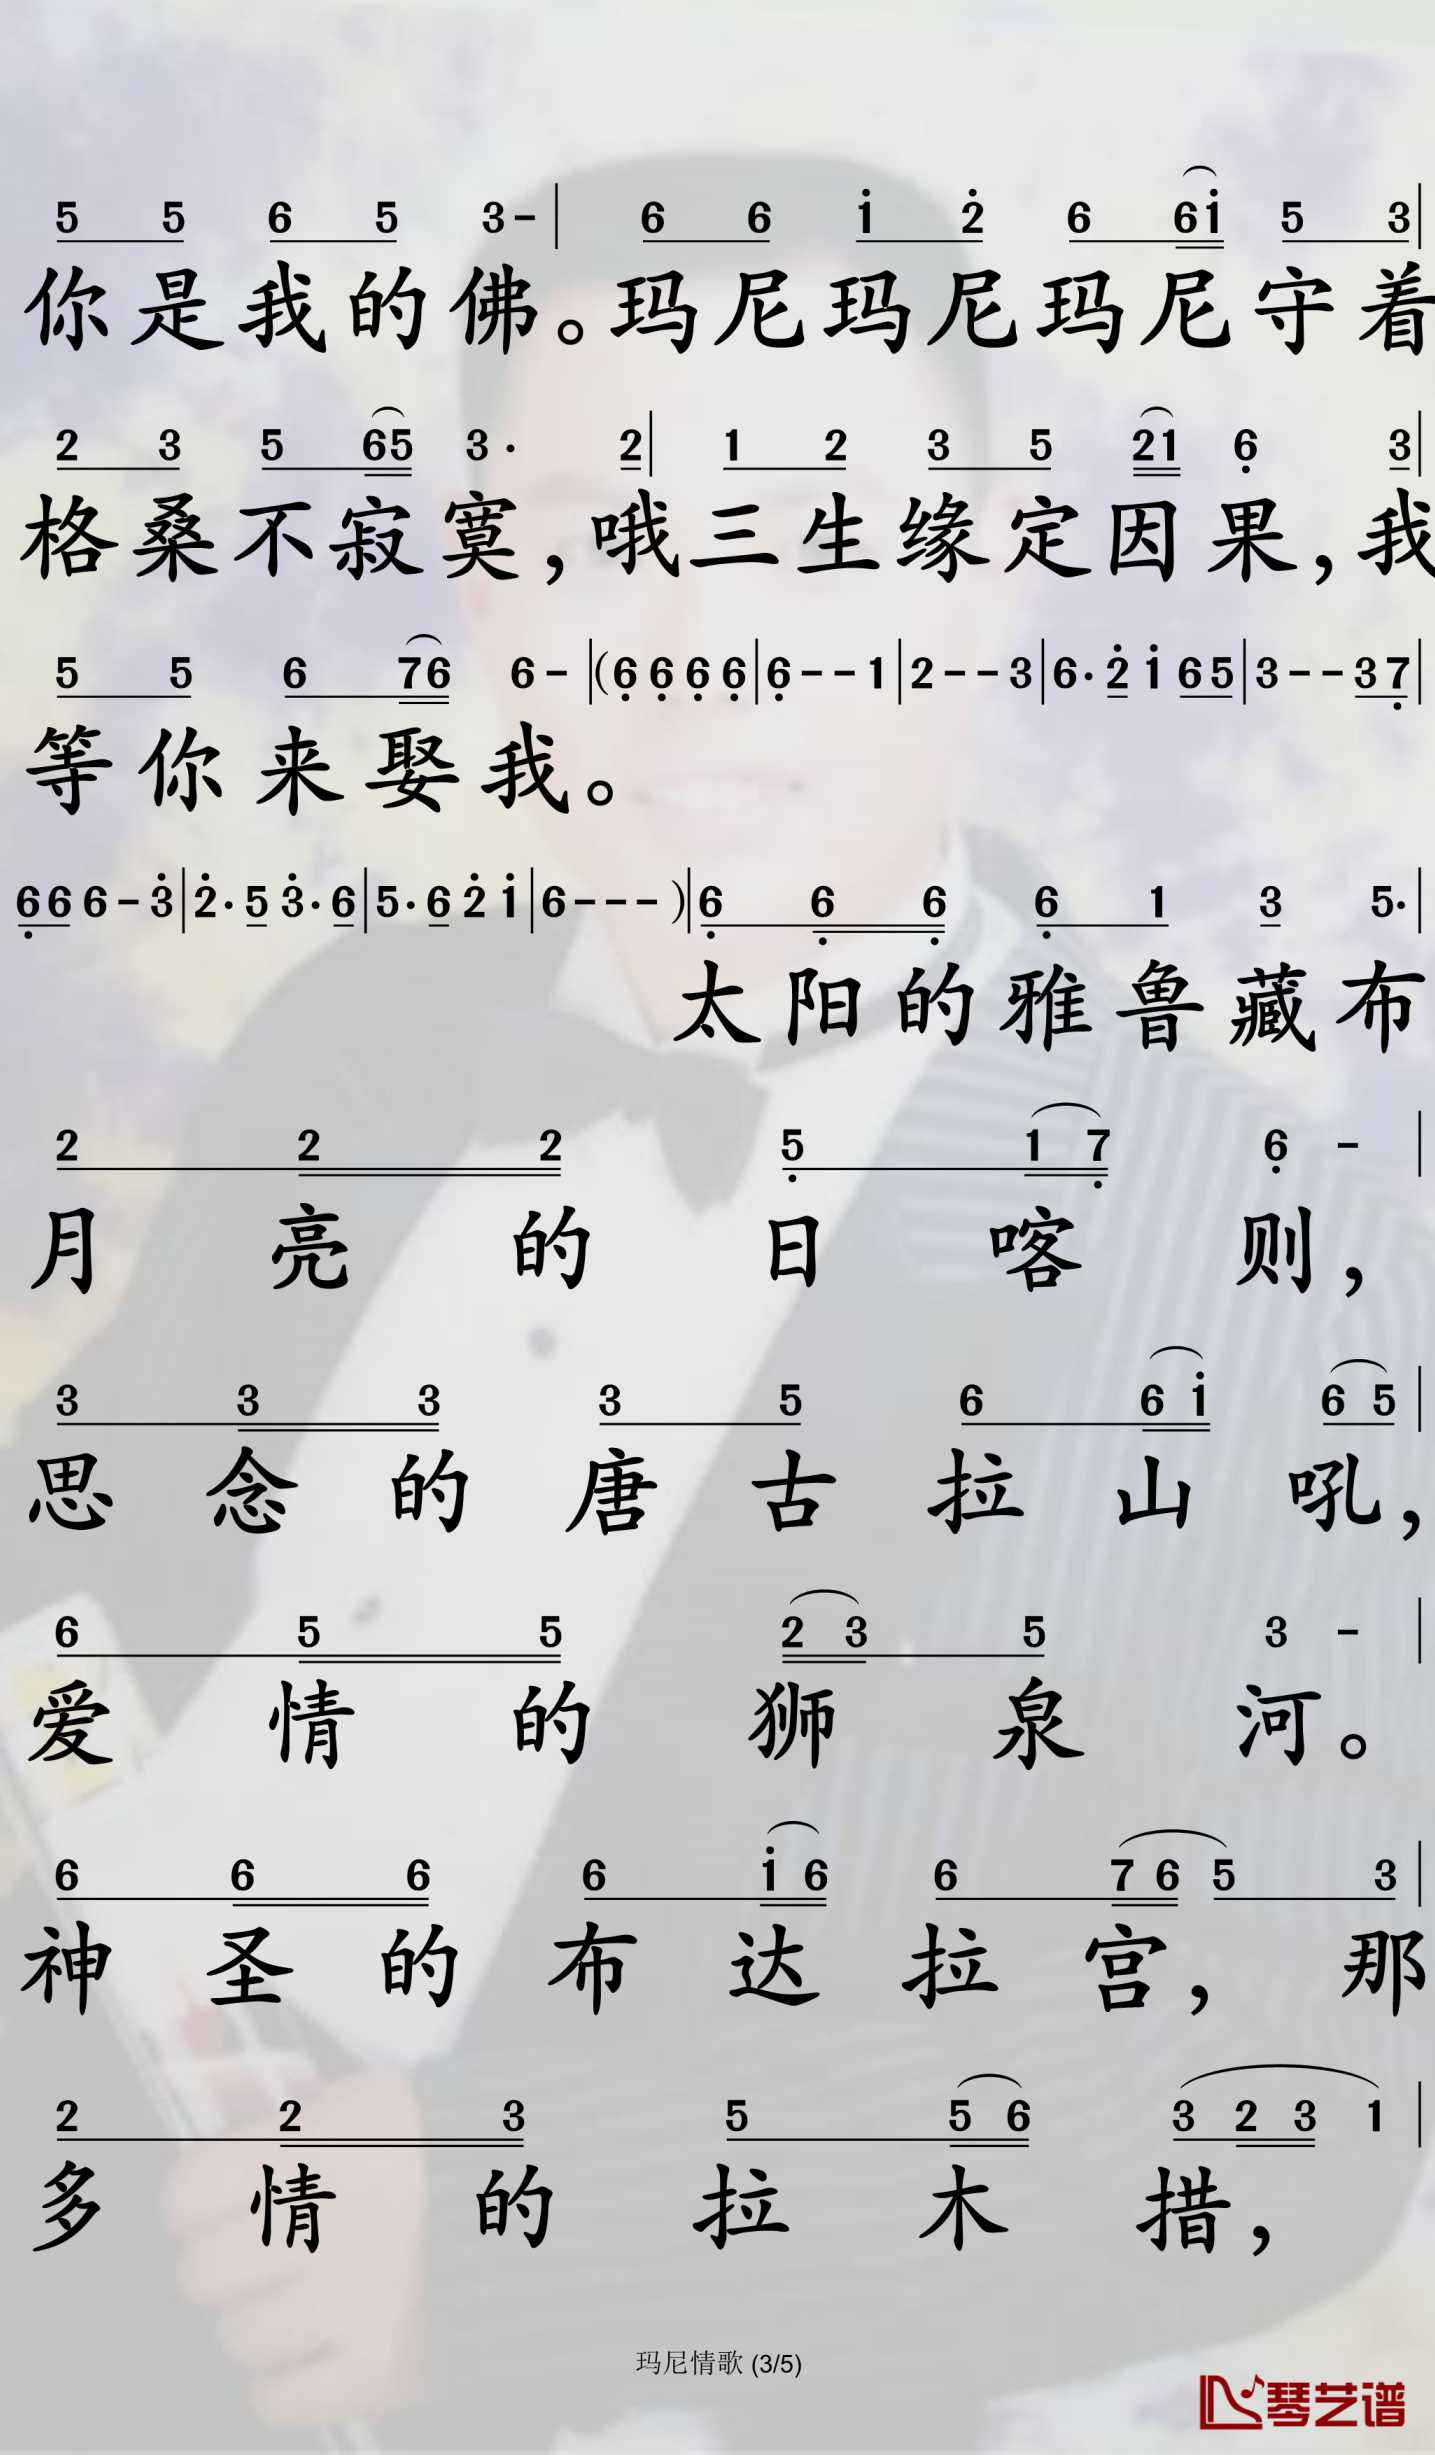 5 5 6 5 3 - | 6 6 1̇ 2̇ 6 61̇ 5 3 |
你是我的佛。玛尼玛尼玛尼守着
2 3 5 65 3 · 2 | 1 2 3 5 21 6̣ 3 |
格桑不寂寞，哦三生缘定因果，我
5 5 6 76 6 - | (6̣ 6̣ 6̣ 6̣ | 6̣ - - 1 | 2 - - 3 | 6 · 2̇ 1̇ 65 | 3 - - 37̣ |
等你来娶我。
6̣6 6 - 3̇ | 2̇ · 5 3̇ · 6 | 5 · 6 2̇ 1̇ | 6 - - - ) | 6̣ 6̣ 6̣ 6̣ 1 3 5 · |
太阳的雅鲁藏布
2 2 2 5̣ 1 7̣ 6̣ - |
月亮的日喀则，
3 3 3 3 5 6 6 1̇ 6 5 |
思念的唐古拉山吼，
6 5 5 2 3 5 3 - |
爱情的狮泉河。
6 6 6 6 1̇ 6 6 7 6 5 3 |
神圣的布达拉宫，那
2 2 3 5 5 6 3 2 3 1 |
多情的拉木措，
玛尼情歌 (3/5)
琴艺谱